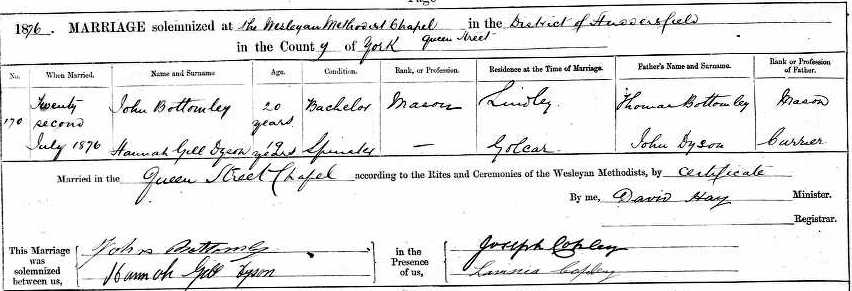 Page
1876. MARRIAGE solemnized at the Wesleyan Methodist Chapel in the District of Huddersfield
Queen Street
in the County of York
No. When Married. Name and Surname Age. Condition. Rank, or Profession. Residence at the Time of Marriage. Father's Name and Surname. Rank or Profession of Father.
170 Twenty second July 1876 John Bottomley 20 years Bachelor Mason Lindley Thomas Bottomley Mason
Hannah Gill Dyson 19 years Spinster — Golcar John Dyson Carrier
Married in the Queen Street Chapel according to the Rites and Ceremonies of the Wesleyan Methodists, by certificate
By me, David Hay Minister.
Registrar.
This Marriage was solemnized between us, John Bottomley Hannah Gill Dyson in the Presence of us, Joseph Copley Copley